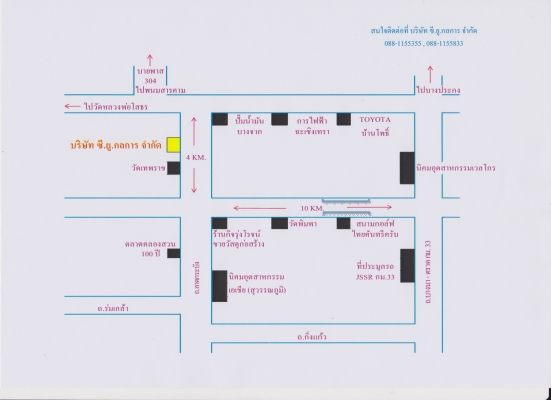 สนใจติดต่อที่ บริษัท ซี.ยู.กลการ จำกัด
088-1155355 , 088-1155833
บายพาส
304
ไปพนมสารคาม
ไปบางปะกง
ไปวัดหลวงพ่อโสธร
ปั๊มน้ำมัน
บางจาก
การไฟฟ้า
ฉะเชิงเทรา
TOYOTA
บ้านโพธิ์
บริษัท ซี.ยู.กลการ จำกัด
4 KM.
วัดเทพราช
นิคมอุตสาหกรรมเวลโกร
10 KM.
ร้านกิจรุ่งโรจน์
ขายวัสดุก่อสร้าง
วัดพิมพา
สนามกอล์ฟ
ไทยคันทรีครับ
ตลาดคลองสวน
100 ปี
นิคมอุตสาหกรรม
เอเซีย (สุวรรณภูมิ)
ที่ประมูลรถ
JSSR กม.33
ถ.ลาดกระบัง
ถ.บางนา - ตราด กม. 33
ถ.ร่มเกล้า
ถ.กิ่งแก้ว